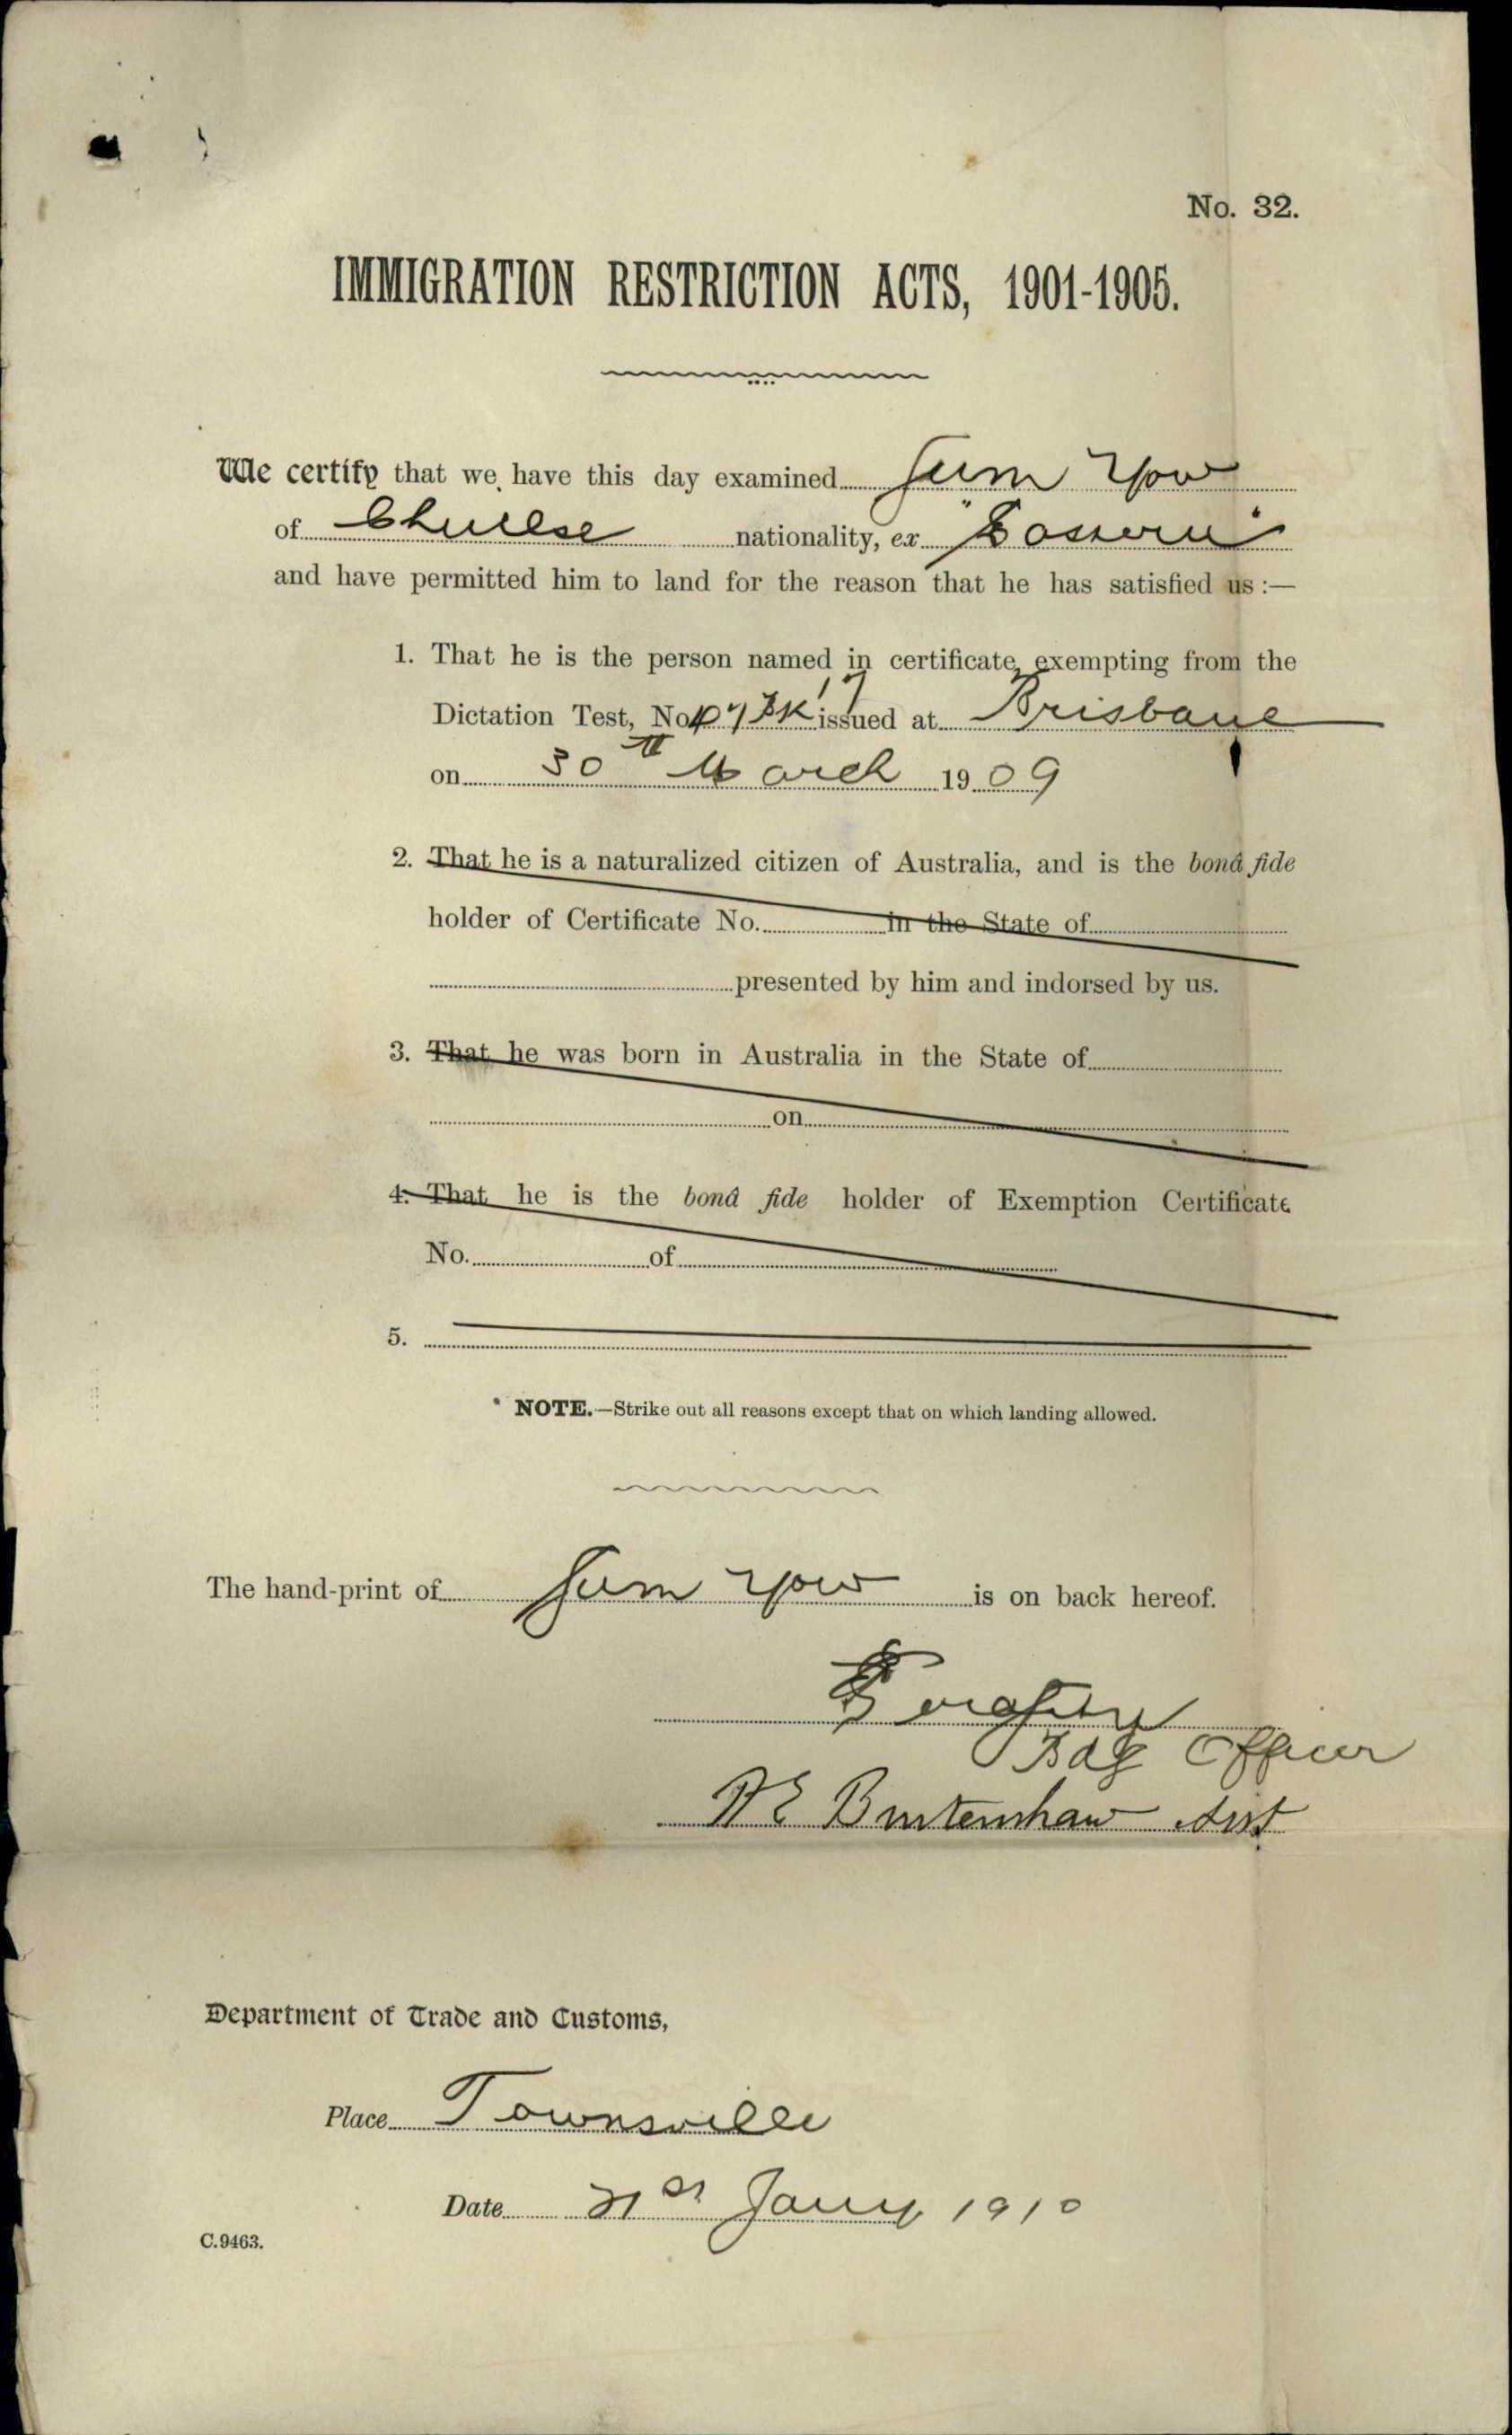 No. 32.
IMMIGRATION RESTRICTION ACTS, 1901-1905.
We certify that we have this day examined Sum Yow
of Chinese nationality, ex "Eastern"
and have permitted him to land for the reason that he has satisfied us :—
1. That he is the person named in certificate exempting from the
Dictation Test, No. issued at Brisbane
on 30th March 1909
2. That he is a naturalized citizen of Australia, and is the bonâ fide
holder of Certificate No. in the State of
presented by him and indorsed by us.
3. That he was born in Australia in the State of
on
4. That he is the bonâ fide holder of Exemption Certificate
No. of
5.
NOTE.—Strike out all reasons except that on which landing allowed.
The hand-print of Sum Yow is on back hereof.
Officer
Asst
Department of Trade and Customs,
Place Townsville
Date 21st Jany 1910
C.9463.